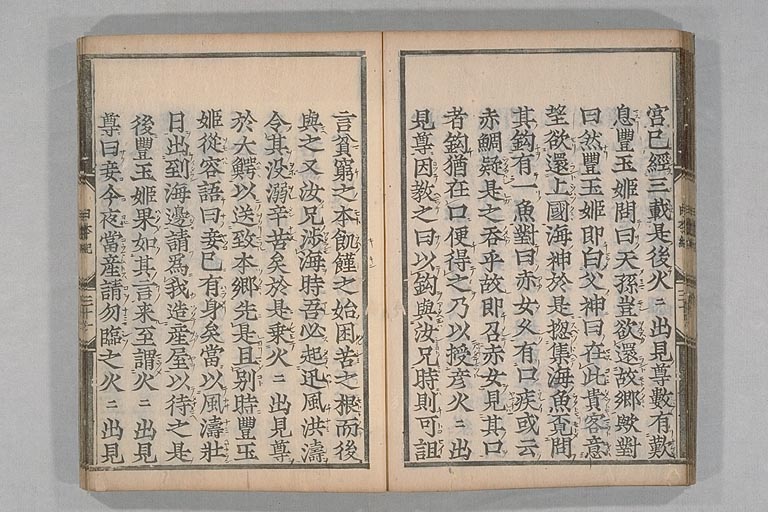 宮已經三載是後火〻出見尊數有歎
息豐玉姬問曰天孫豈欲還故鄉歟對
曰然豐玉姬即白父神曰在此貴客意
望欲還上國海神於是摠集海魚覓問
其鈎有一魚對曰赤女久有口疾或云
赤鯛疑是之吞乎故即召赤女見其口
者鈎猶在口便得之乃以授彦火〻出
見尊因教之曰以鈎與汝兄時則可詛
言貧窮之本飢饉之始困苦之根而後
與之又汝兄涉海時吾必起迅風洪濤
令其没溺辛苦矣於是乗火〻出見尊
於大鰐以送致本鄉先是且别時豐玉
姬從容語曰妾已有身矣當以風濤壯
日出到海邊請爲我造産屋以待之是
後豐玉姬果如其言来至謂火〻出見
尊曰妾今夜當産請勿臨之火〻出見